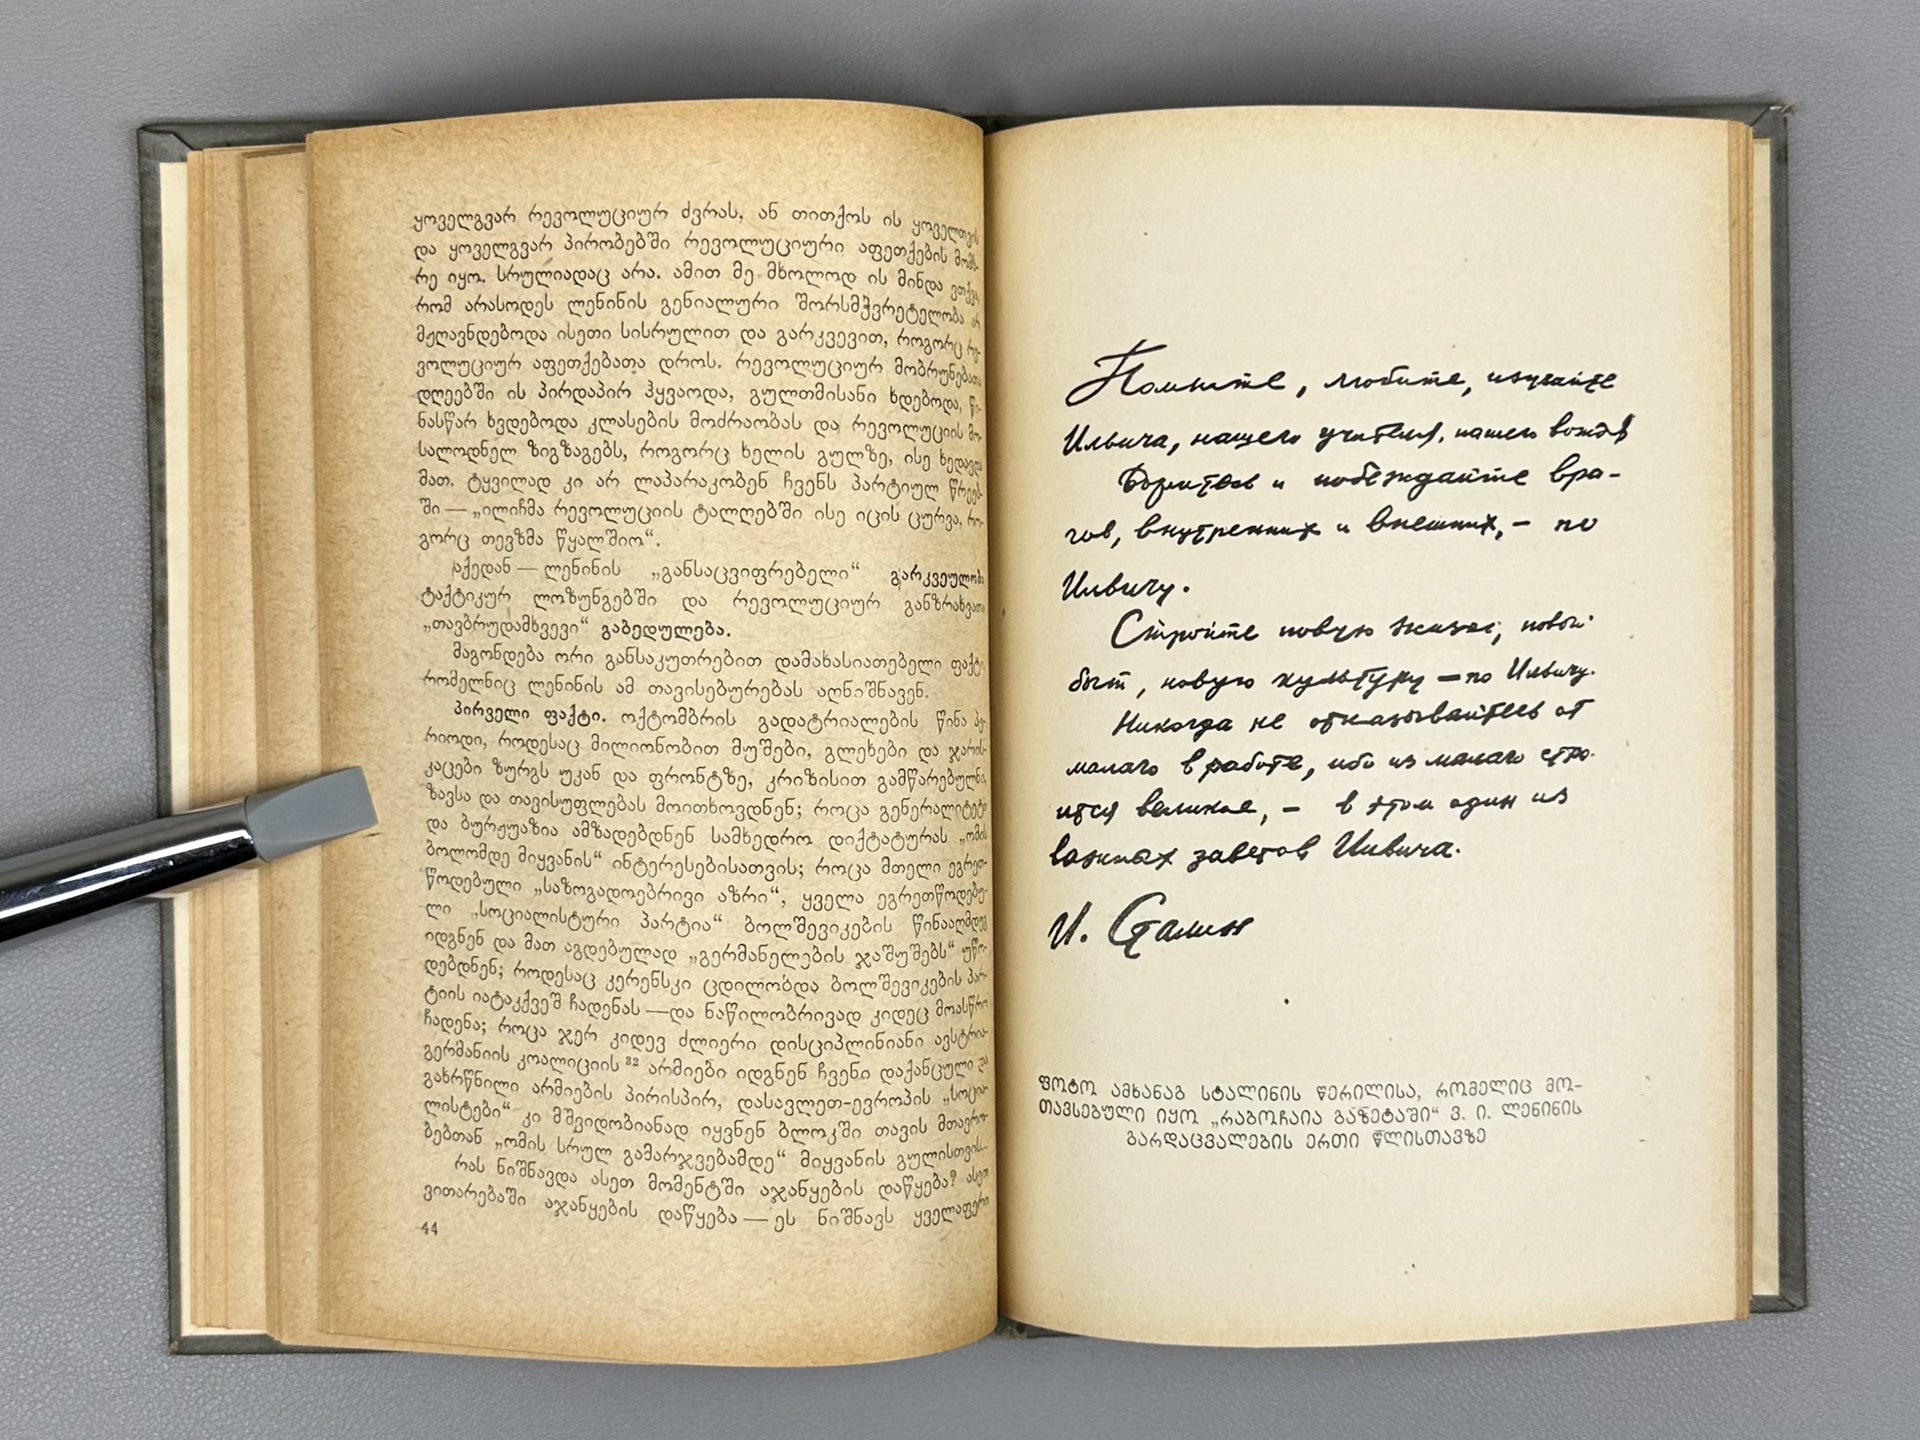 ყოველგვარ რევოლუციურ ძვრას, ან თითქოს ის ყოველთვის
და ყოველგვარ პირობებში რევოლუციური აფეთქების მომხ-
რე იყო. სრულიადაც არა. ამით მე მხოლოდ ის მინდა ვთქვა,
რომ არასოდეს ლენინის გენიალური შორსმჭვრეტელობა არ
მჟღავნდებოდა ისეთი სისრულით და გარკვევით, როგორც რე-
ვოლუციურ აფეთქებათა დროს. რევოლუციურ მობრუნებათა
დღეებში ის პირდაპირ ჰყვაოდა, გულთმისანი ხდებოდა, წი-
ნასწარ ხვდებოდა კლასების მოძრაობას და რევოლუციის მო-
სალოდნელ ზიგზაგებს, როგორც ხელის გულზე, ისე ხედავდა
მათ. ტყვილად კი არ ლაპარაკობენ ჩვენს პარტიულ წრეებ-
ში — „ილიჩმა რევოლუციის ტალღებში ისე იცის ცურვა, რო-
გორც თევზმა წყალშიო“.
აქედან — ლენინის „განსაცვიფრებელი“ გარკვეულობა
ტაქტიკურ ლოზუნგებში და რევოლუციურ განზრახვათა
„თავბრუდამხვევი“ გაბედულება.
მაგონდება ორი განსაკუთრებით დამახასიათებელი ფაქტი,
რომელნიც ლენინის ამ თავისებურებას აღნიშნავენ.
პირველი ფაქტი. ოქტომბრის გადატრიალების წინა პე-
რიოდი, როდესაც მილიონობით მუშები, გლეხები და ჯარის-
კაცები ზურგს უკან და ფრონტზე, კრიზისით გამწარებულნი,
ზავსა და თავისუფლებას მოითხოვდნენ; როცა გენერალიტეტი
და ბურჟუაზია ამზადებდნენ სამხედრო დიქტატურას „ომის
ბოლომდე მიყვანის“ ინტერესებისათვის; როცა მთელი ეგრეთ-
წოდებული „საზოგადოებრივი აზრი“, ყველა ეგრეთწოდებუ-
ლი „სოციალისტური პარტია“ ბოლშევიკების წინააღმდეგ
იდგნენ და მათ აგდებულად „გერმანელების ჯაშუშებს“ უწო-
დებდნენ; როდესაც კერენსკი ცდილობდა ბოლშევიკების პარ-
ტიის იატაკქვეშ ჩადენას — და ნაწილობრივად კიდეც მოასწრო
ჩადენა; როცა ჯერ კიდევ ძლიერი დისციპლინიანი ავსტრია-
გერმანიის კოალიციის ³² არმიები იდგნენ ჩვენი დაქანცული და
გახრწნილი არმიების პირისპირ, დასავლეთ-ევროპის „სოცია-
ლისტები“ კი მშვიდობიანად იყვნენ ბლოკში თავის მთავრო-
ბებთან „ომის სრულ გამარჯვებამდე“ მიყვანის გულისთვის...
რას ნიშნავდა ასეთ მომენტში აჯანყების დაწყება? ასეთ
ვითარებაში აჯანყების დაწყება — ეს ნიშნავს ყველაფერი
44
Помните, любите, изучайте
Ильича, нашего учителя, нашего вождя
Боритесь и побеждайте вра-
гов, внутренних и внешних, – по
Ильичу.
Стройте новую жизнь, новый
быт, новую культуру – по Ильичу.
Никогда не отказывайтесь от
малого в работе, ибо из малого стро-
ится великое, – в этом один из
важных заветов Ильича.
И. Сталин
ფოტო ამხანაგ სტალინის წერილისა, რომელიც მო-
თავსებული იყო „რაბოჩაია გაზეტაში“ ვ. ი. ლენინის
გარდაცვალების ერთი წლისთავზე